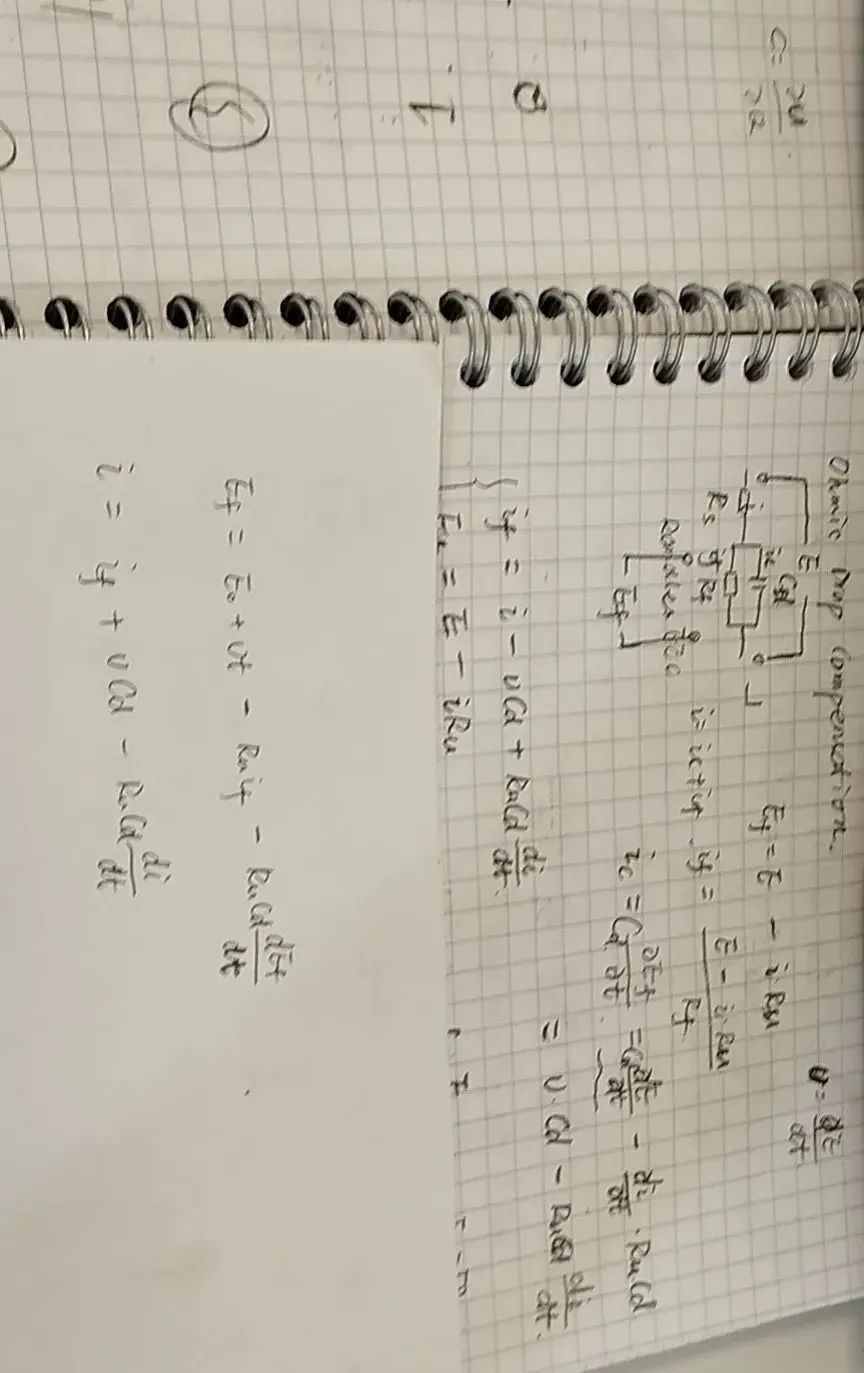 Ohmic Drop Compensation.
v = dE/dt
E
Cd
ic
i
Rs if Rf
Ef
Ef = E - i Ru
i = ic + if . if = (E - i · Ru)/Rf
ic = Cd ∂Ef/∂t = Cd dE/dt - di/dt · Ru Cd
= v · Cd - Ru Cd di/dt .
{ if = i - vCd + RuCd di/dt .
= E - iRu
Ef = E0 + vt - Ru if - RuCd dEf/dt
i = if + vCd - RuCd di/dt
0
1
5